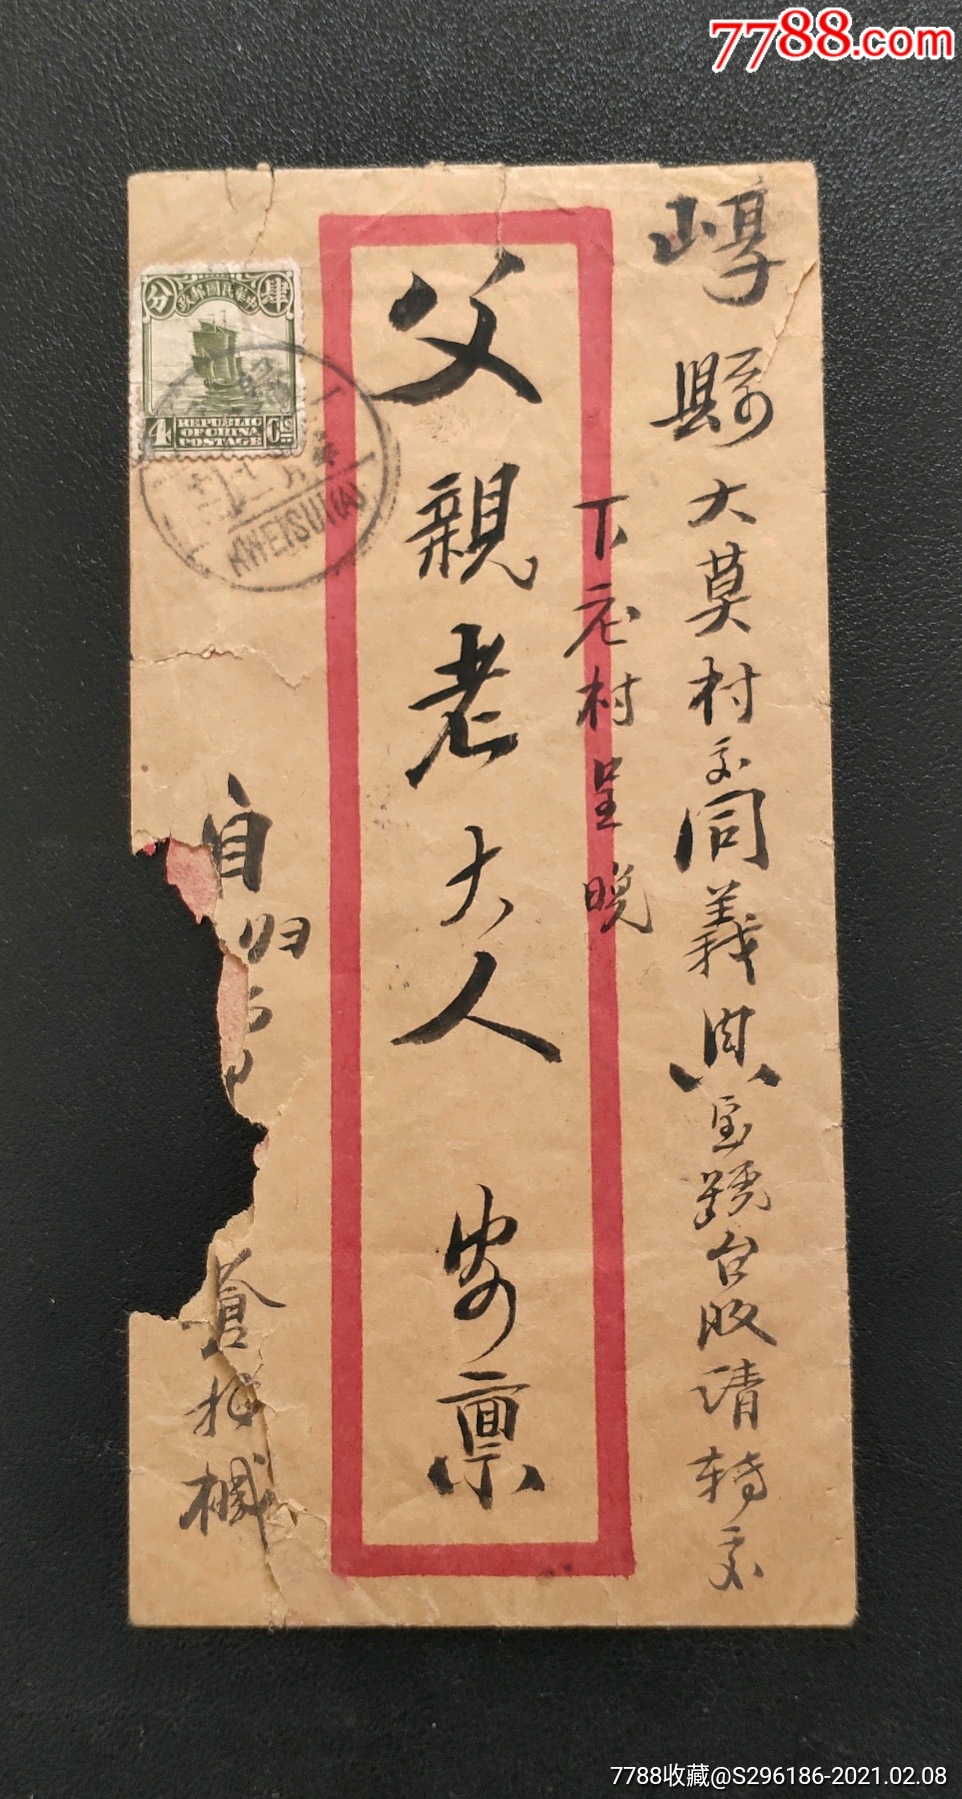 7788.com
崞縣大莫村交同義興宝號台收請轉交
下庄村呈晚
父親老大人安禀
自归
蒼杉械
中華民國郵政
肆
分
4
Cts
REPUBLIC
OF CHINA
POSTAGE
KWEISUI(A)
7788收藏@S296186-2021.02.08